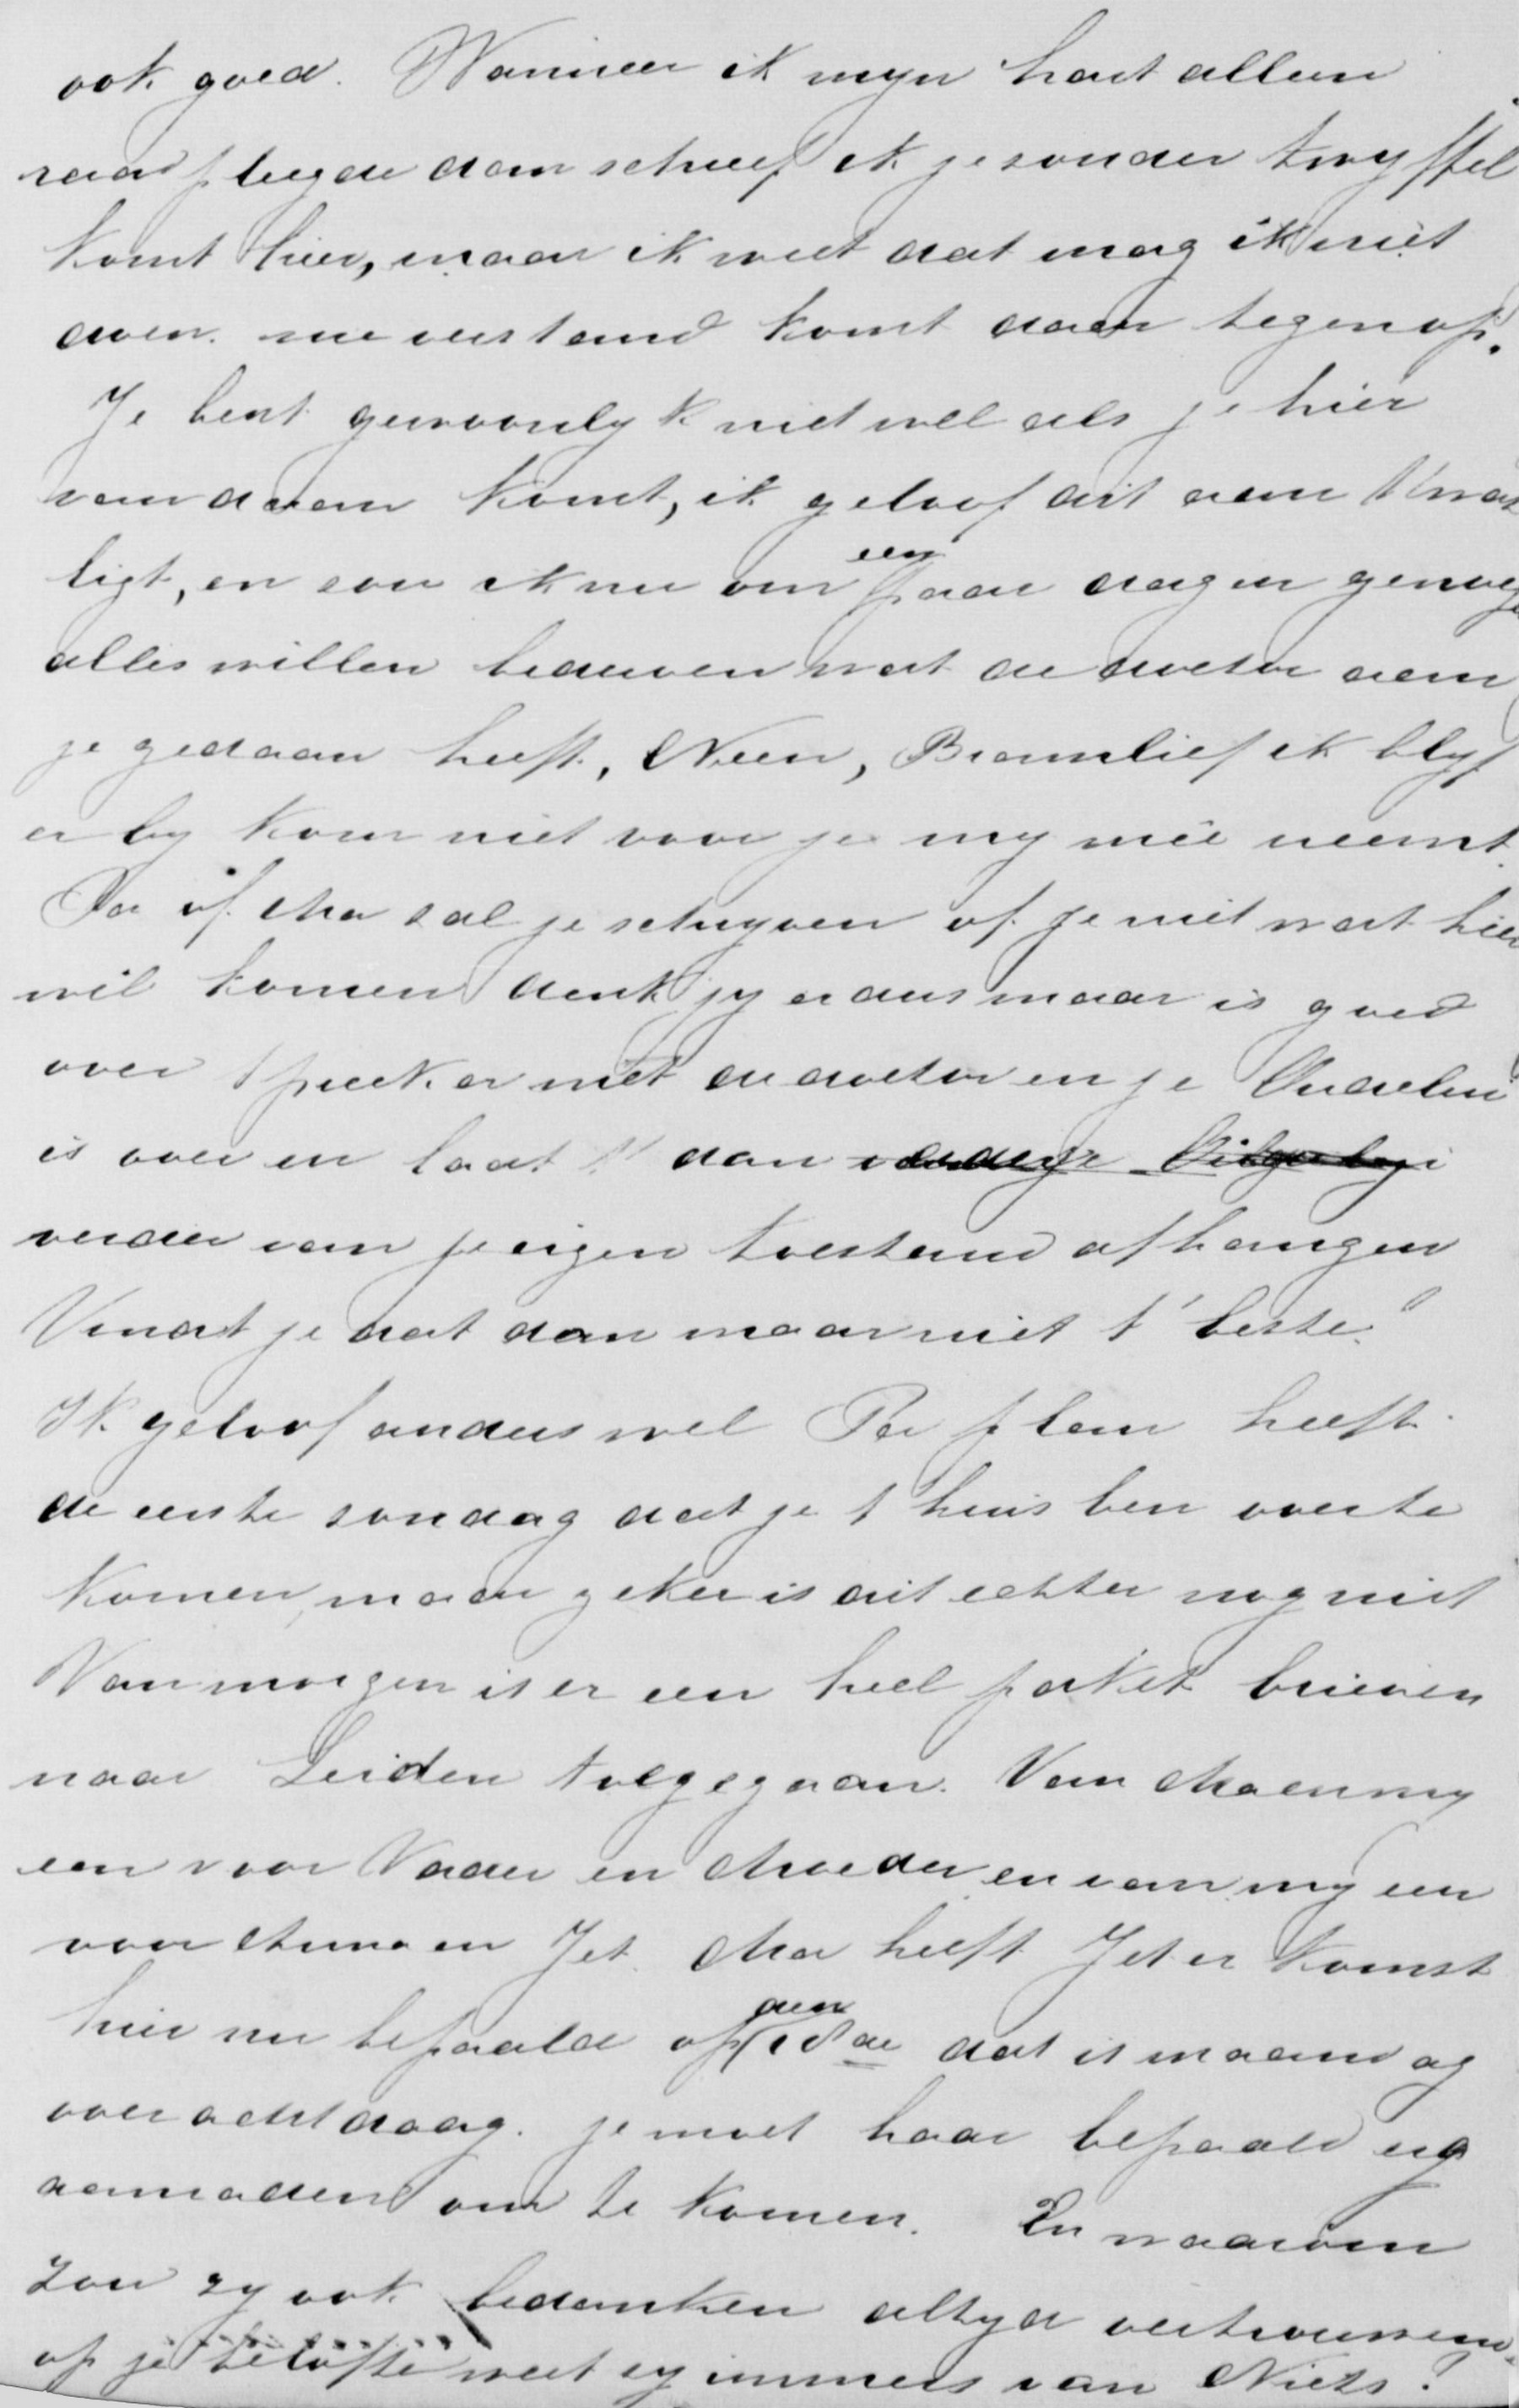 ook goed. Wanneer ik myn hart alleen
raadpleegde dan schreef ik je zonder twyffel
komt hier, maar ik weet dat mag ik niet
doen. me verstand komt daar tegen op.
Je bent gewoonlyk niet wel als je hier
van daan komt, ik geloof dit aan
ligt, en zou ik nu om een paar dagen
alles willen bederven wat de doctor aan
je gedaan heeft, Neen, Bramlief ik blyf
er by kom niet voor je my meê neemt.
Pa of Ma zal je schryven of je niet wat hier
wil komen denk jy er dus maar is goed
over spreek er met de doctor en je Ouders
is over en laat 't dan
verder van je eigen toestand afhangen
Vindt je dat dan maar niet t' beste?
Ik geloof anders wel Pa plan heeft
de eerste zondag dat je t huis ben over te
komen, maar zeker is dit echter nog niet
Van morgen is er een heel pakket brieven
naar Leiden toegegaan. Van Ma en my
een voor Vader en Moeder en van my een
voor Anna en Jet. Ma heeft Jet er komst
hier nu bepaald op den de dat is maandag
over acht daag. je moet haar bepaald
aanraden om te komen. En waarom
zou zy ook bedanken altyd vertrouwend
op je belofte weet zy immers van Niets!